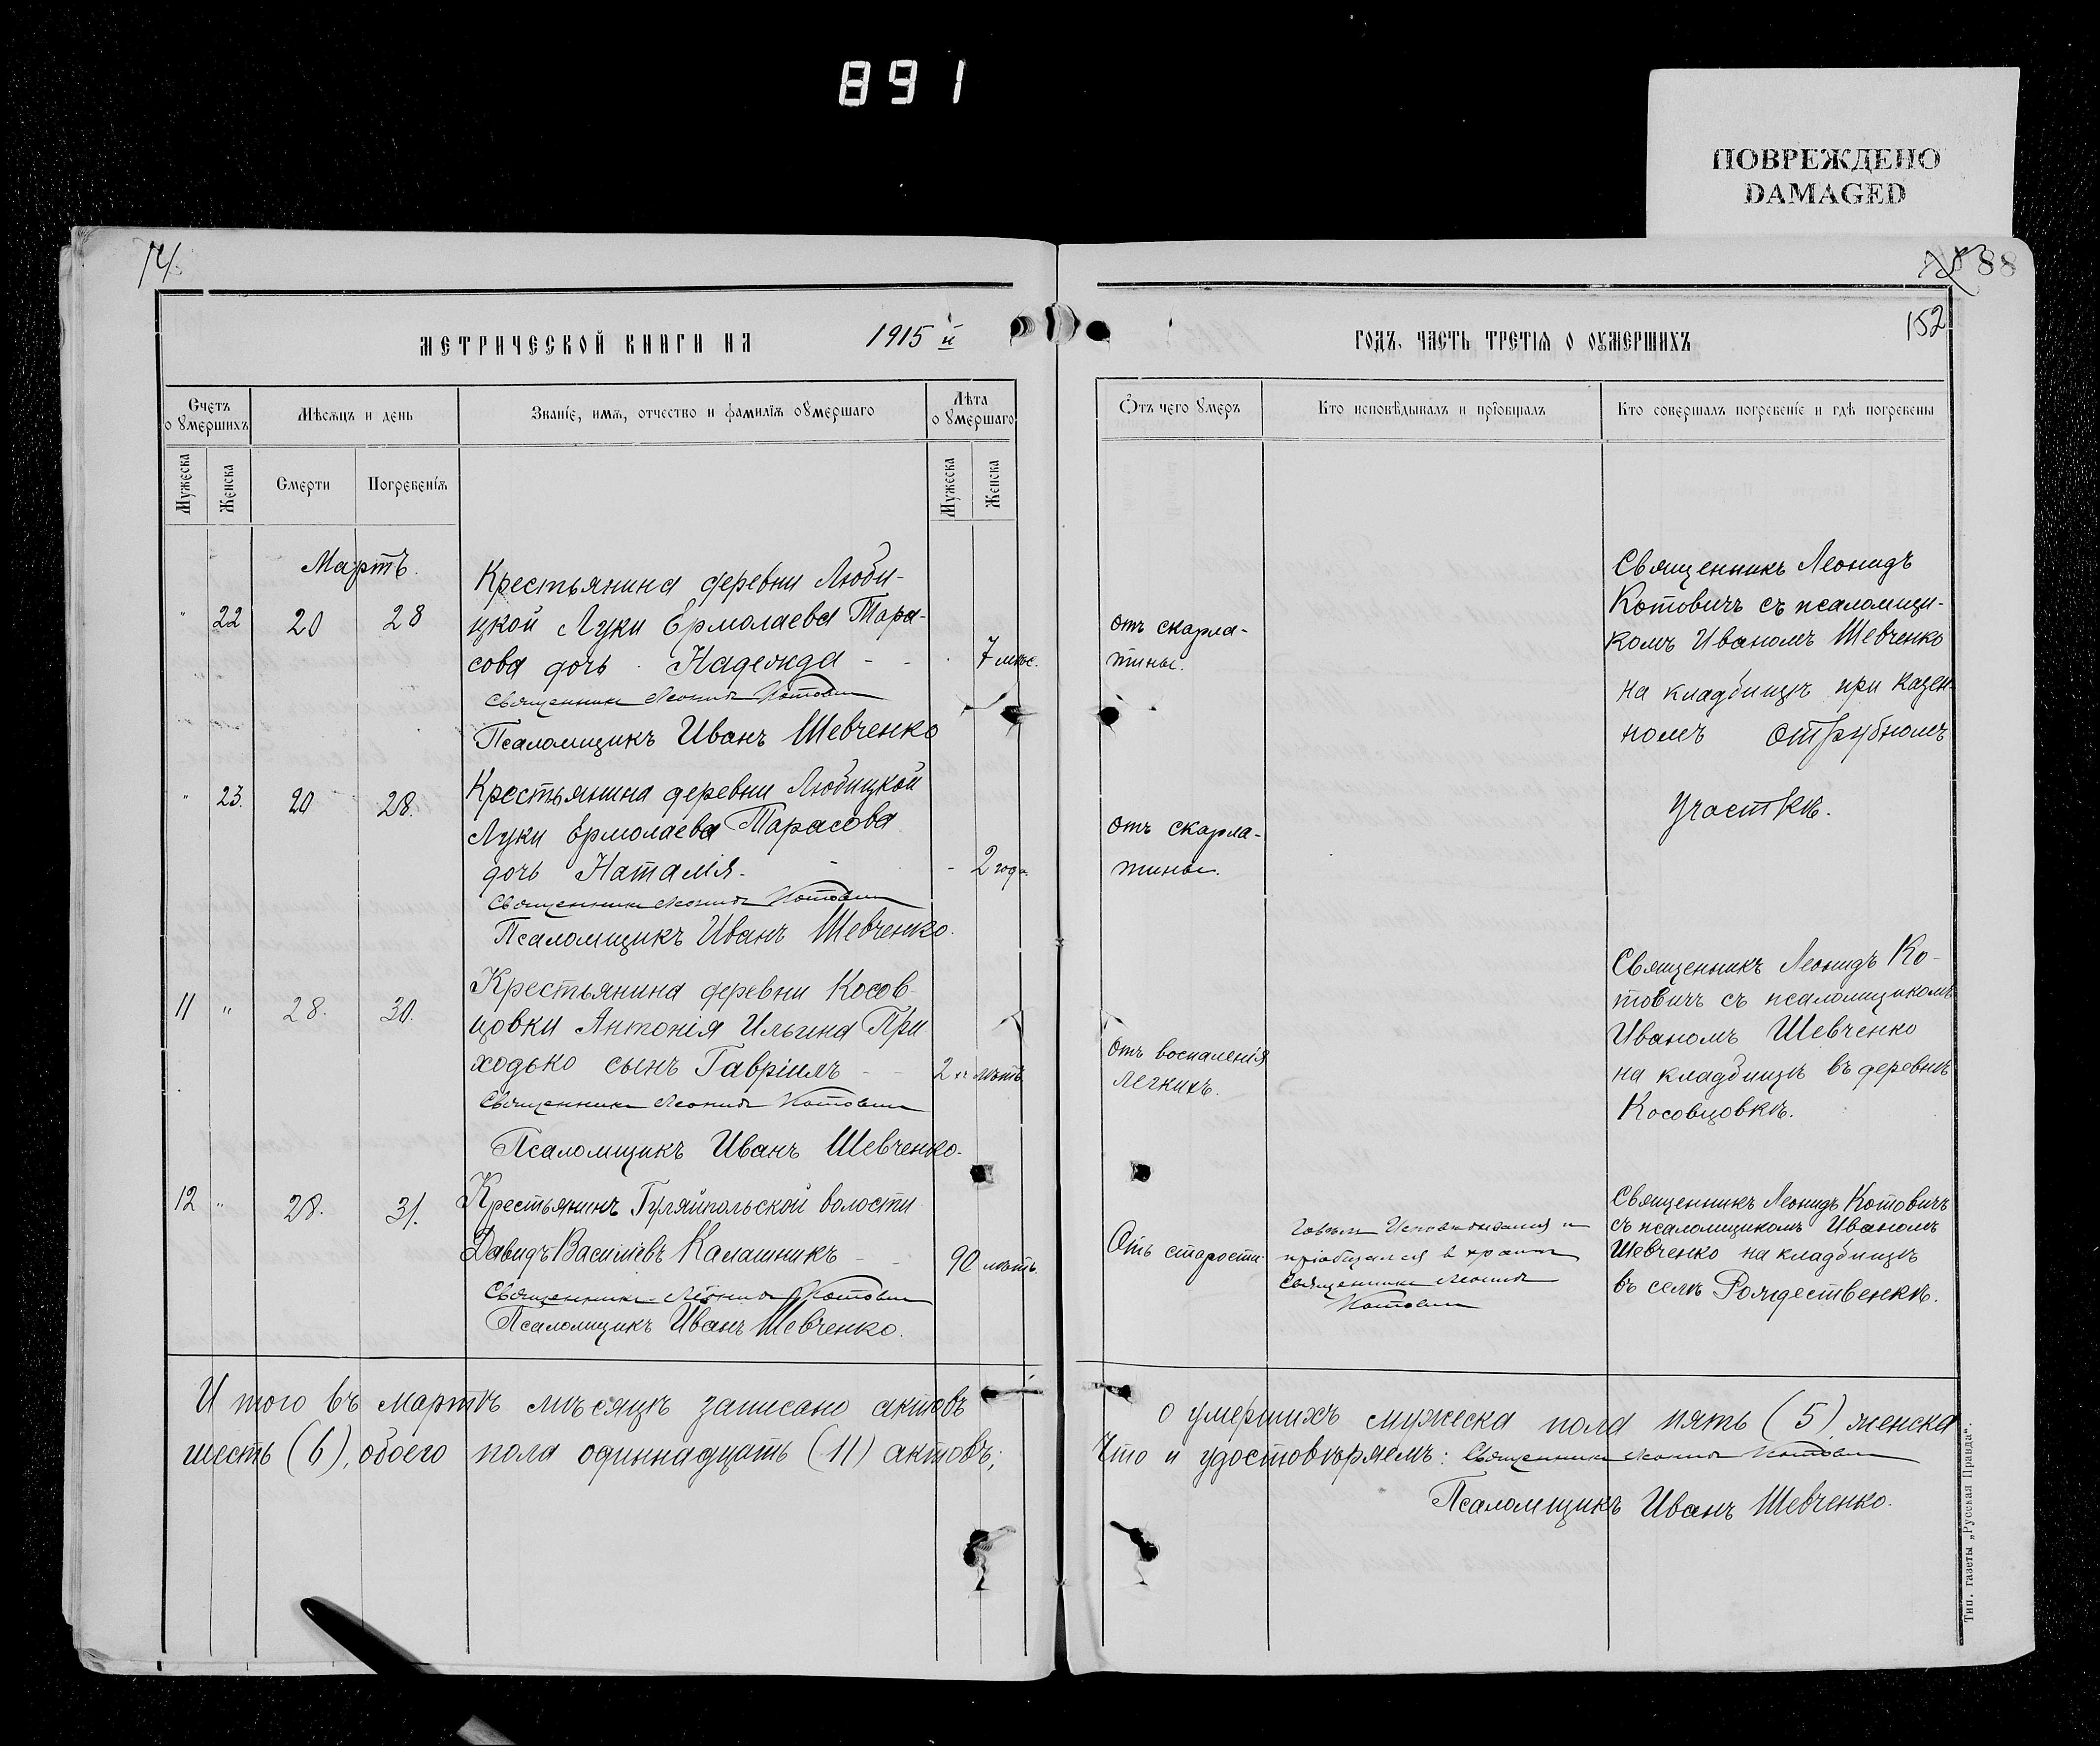 891
ПОВРЕЖДЕНО
DAMAGED
74.
88
152
МЕТРИЧЕСКОЙ КНИГИ НА 1915 й
ГОДЪ, ЧАСТЬ ТРЕТІѦ О ОУМЕРШИХЪ
Счетъ
оумершихъ
Мѣсѧцъ и день
Званіе, имѧ, отчество и фамиліѧ оумершаго
Лѣта
оумершаго
Мужеска
Женска
Смерти
Погребеніѧ
Мужеска
Женска
Отъ чего умеръ
Кто исповѣдывалъ и пріобщалъ
Кто совершалъ погребеніе и гдѣ погребены
Мартъ.
" 22 20 28
Крестьянина деревни Люби-
цкой Луки Ермолаева Тара-
сова дочь Надежда - -
7 мѣс.
Священникъ Леонидъ Котовичъ
Псаломщикъ Иванъ Шевченко
отъ скарла-
тины.
Священникъ Леонидъ
Котовичъ съ псаломщи-
комъ Иваномъ Шевченко
на кладбищѣ при казен-
номъ отрубномъ
участкѣ.
" 23. 20 28.
Крестьянина деревни Любицкой
Луки Ермолаева Тарасова
дочь Наталія. -
- 2 года
Священникъ Леонидъ Котовичъ
Псаломщикъ Иванъ Шевченко.
отъ скарла-
тины.
11 " 28. 30.
Крестьянина деревни Косов-
цовки Антонія Ильина При
ходько сынъ Гавріилъ - -
2 лѣтъ
Священникъ Леонидъ Котовичъ
Псаломщикъ Иванъ Шевченко.
Отъ воспаленія
легкихъ.
Священникъ Леонидъ Ко-
товичъ съ псаломщикомъ
Иваномъ Шевченко
на кладбищѣ въ деревнѣ
Косовцовкѣ.
12 " 28. 31.
Крестьянинъ Гуляйпольской волости
Давидъ Васильевъ Калашникъ - -
90 лѣтъ.
Священникъ Леонидъ Котовичъ
Псаломщикъ Иванъ Шевченко.
Отъ старости.
Говѣлъ исповѣдывался и
пріобщался в храмѣ
Священникъ Леонидъ
Котовичъ
Священникъ Леонидъ Котовичъ
съ псаломщикомъ Иваномъ
Шевченко на кладбищѣ
въ селѣ Рождественкѣ.
И того въ мартѣ мѣсяцѣ записано актовъ
о умершихъ мужеска пола пять (5), женска
шесть (6), обоего пола одиннадцать (11) актовъ;
Что и удостовѣряемъ: Священникъ Леонидъ Котовичъ
Псаломщикъ Иванъ Шевченко.
Тип. газеты „Русская Правда“.